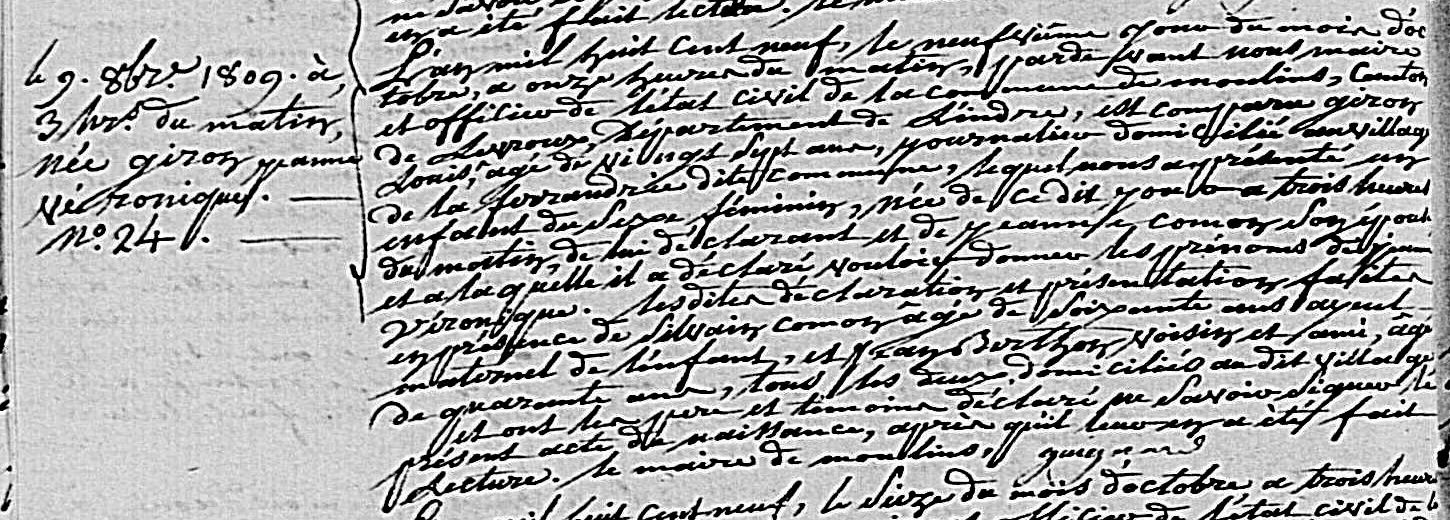 en a été fait lecture. le
le 9. 8bre. 1809. à
3 hrs. du matin,
née giron jeanne
véronique.
No. 24.
L'an mil huit cent neuf, le neufvième jour du mois d'oc
tobre, a onze heures du matin, pardevant nous maire
et officier de l'état civil de la commune de moulins, Canton
de Levroux, Département de l'indre, est comparu giron
Louis, âgé de vingt sept ans, journalier domicilié au village
de la ferrandrie dite commune, lequel nous a présenté un
enfant du sexe féminin, née de ce dit jour a trois heures
du matin, de lui déclarant et de jeanne comon son épouse
et a laquelle il a déclaré vouloir donner les prénoms de jeanne
véronique. lesdites déclaration et présentation faites
en présence de Silvain comon âgé de soixante ans ayeul
maternel de l'enfant, et jean Berthon voisin et ami, âgé
de quarante ans, tous les deux domiciliés au dit village
et ont les père et témoins déclaré ne savoir signer le
présent acte de naissance, après qu'il leur en a été fait
Lecture. le maire de moulins,
mil huit cent neuf, le Seize du mois d'octobre a trois heures
officier de l'état civil de la